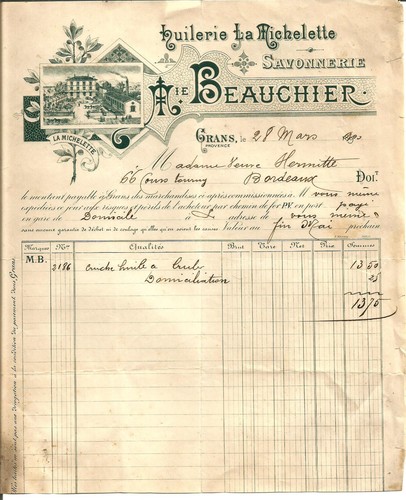 Huilerie La Michelette
SAVONNERIE
A IE BEAUCHIER
LA MICHELETTE
GRANS, le 28 Mars
PROVENCE
Madame Veuve
66 Cours Bordeaux Doit
le montant payable à Grans des marchandises ci-après commissionnées M vous même
expédiées ce jour aux risques et périls de l'acheteur par chemin de fer P.V. en port payé
en gare de Domicile à adresse de vous même
sans aucune garantie de déchet ni de coulage qu'elles qu'en soient les causes. Valeur au fin Mai prochain
Marques Nos Qualités Brut Tare Net Prix Sommes
M.B.
2186 huile a 13 50
Domiciliation 25
13 75